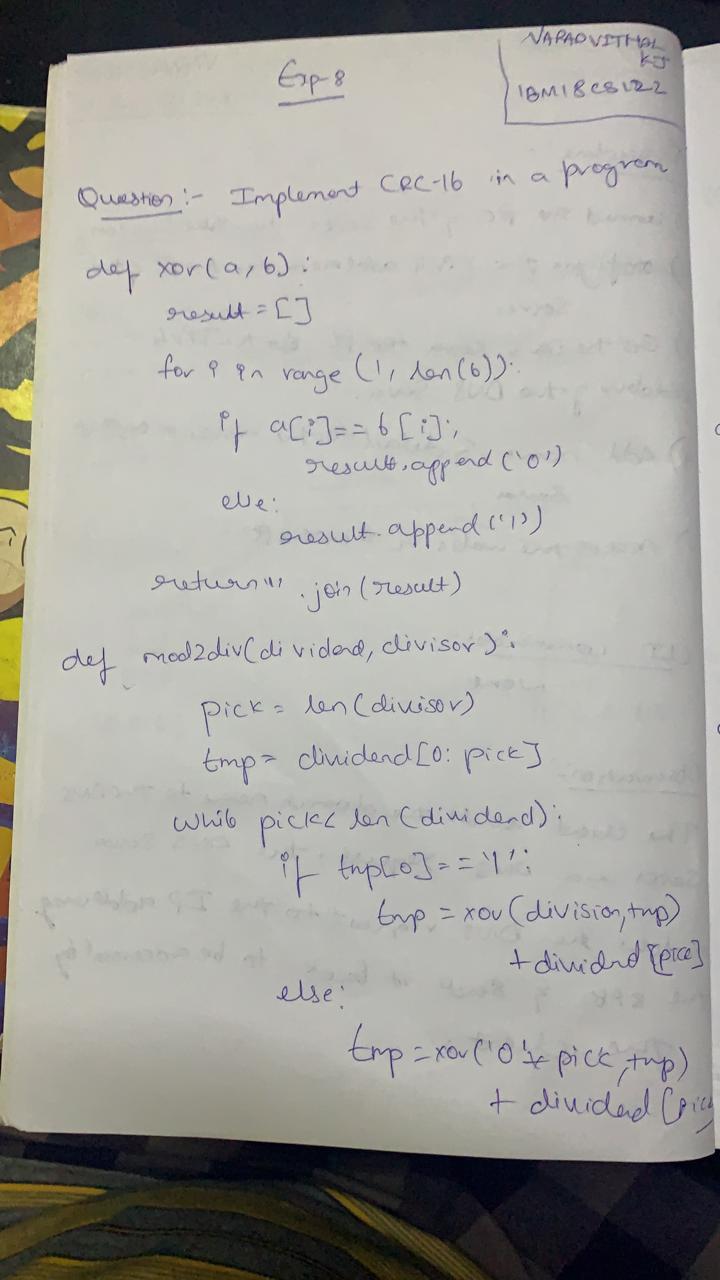 Exp-8
NAPA OVITHAL
KJ
1BM18CS122
Question:- Implement CRC-16 in a program
def xor(a,b):
result = []
for i in range (1, len(b)):
if a[i]==b[i]:
result.append('0')
else:
result.append('1')
return''.join(result)
def mod2div(dividend, divisor):
pick = len(divisor)
tmp = dividend[0: pick]
while pick< len(dividend):
if tmp[0]=='1':
tmp = xor(division,tmp)
+dividend[pick]
else:
tmp = xor('0'* pick,tmp)
+ dividend[pic